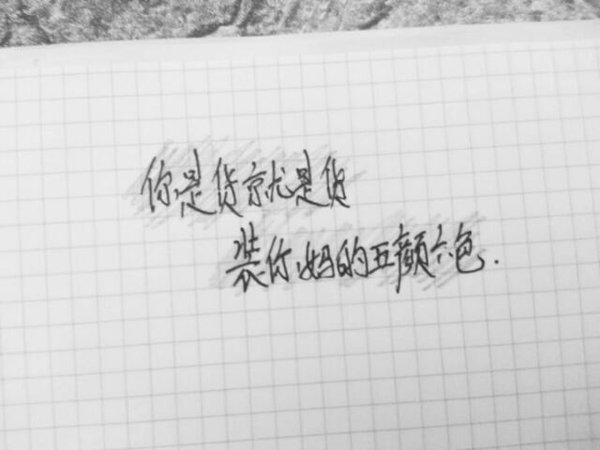 你是货就是货
装你妈的五颜六色.